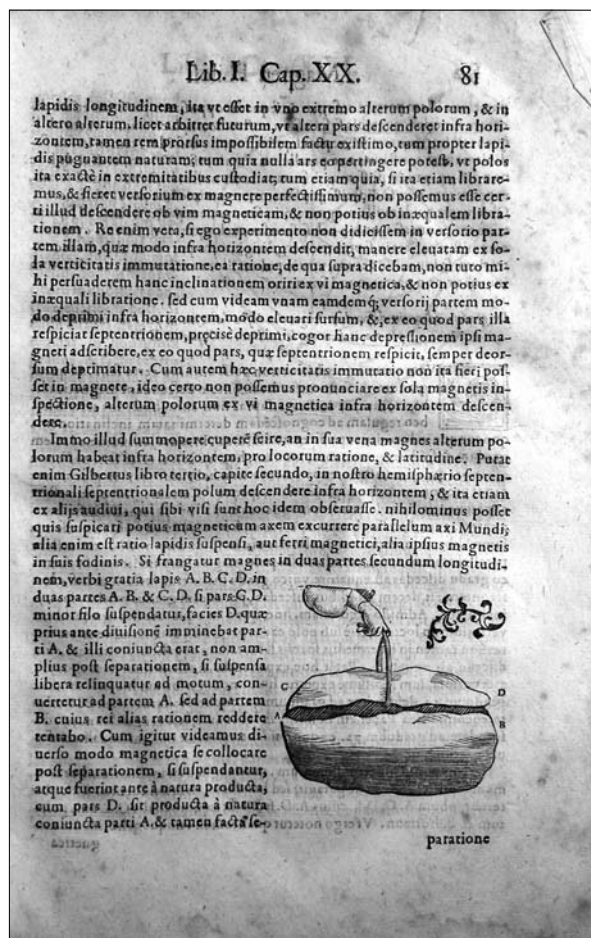 Lib. I. Cap. XX. 81
lapidis longitudinem, ita vt esset in vno extremo alterum polorum, & in
altero alterum. licet arbitrer futurum, vt altera pars descenderet infra hori-
zontem, tamen rem prorsus impossibilem factu existimo, tum propter lapi-
dis pugnantem naturam; tum quia nulla ars eo pertingere potest, vt polos
ita exactè in extremitatibus custodiat; tum etiam quia, si ita etiam librare-
mus, & fieret versorium ex magnete perfectissimum, non possemus esse cer-
ti illud descendere ob vim magneticam, & non potius ob inæqualem libra-
tionem. Re enim vera, si ego experimento non didicissem in versorio par-
tem illam, quæ modo infra horizontem descendit, manere eleuatam ex so-
la verticitatis immutatione, ea ratione, de qua supra dicebam, non tuto mi-
hi persuaderem hanc inclinationem oriri ex vi magnetica, & non potius ex
inæquali libratione. sed cum videam vnam eamdemq; versorij partem mo-
do deprimi infra horizontem, modo eleuari sursum, &, ex eo quod pars illa
respiciat septentrionem, precisè deprimi, cogor hanc depressionem ipsi ma-
gneti adscribere, ex eo quod pars, quæ septentrionem respicit, semper deor-
sum deprimatur. Cum autem hæc verticitatis immutatio non ita fieri pos-
set in magnete, ideo certo non possemus pronunciare ex sola magnetis in-
spectione, alterum polorum ex vi magnetica infra horizontem descen-
dere.
Immo illud summopere cuperē scire, an in sua vena magnes alterum po-
lorum habeat infra horizontem, pro locorum ratione, & latitudine. Putat
enim Gilbertus libro tertio, capite secundo, in nostro hemisphærio septen-
trionali septentrionalem polum descendere infra horizontem, & ita etiam
ex alijs audiui, qui sibi visi sunt hoc idem obseruasse. nihilominus posset
quis suspicari potius magneticum axem excurrere parallelum axi Mundi;
alia enim est ratio lapidis suspensi, aut ferri magnetici, alia ipsius magnetis
in suis fodinis. Si frangatur magnes in duas partes secundum longitudi-
nem, verbi gratia lapis A. B. C. D. in
duas partes A. B. & C. D. si pars C. D.
minor filo suspendatur, facies D. quæ
prius ante diuisionē imminebat par-
ti A. & illi coniuncta erat, non am-
plius post separationem, si suspensa
libera relinquatur ad motum, con-
uertetur ad partem A. sed ad partem
B. cuius rei alias rationem reddere
tentabo. Cum igitur videamus di-
uerso modo magnetica se collocare
post separationem, si suspendantur,
atque fuerint ante à natura producta,
cum pars D. sit producta à natura
coniuncta parti A. & tamen facta se-
C
D
A
B
paratione